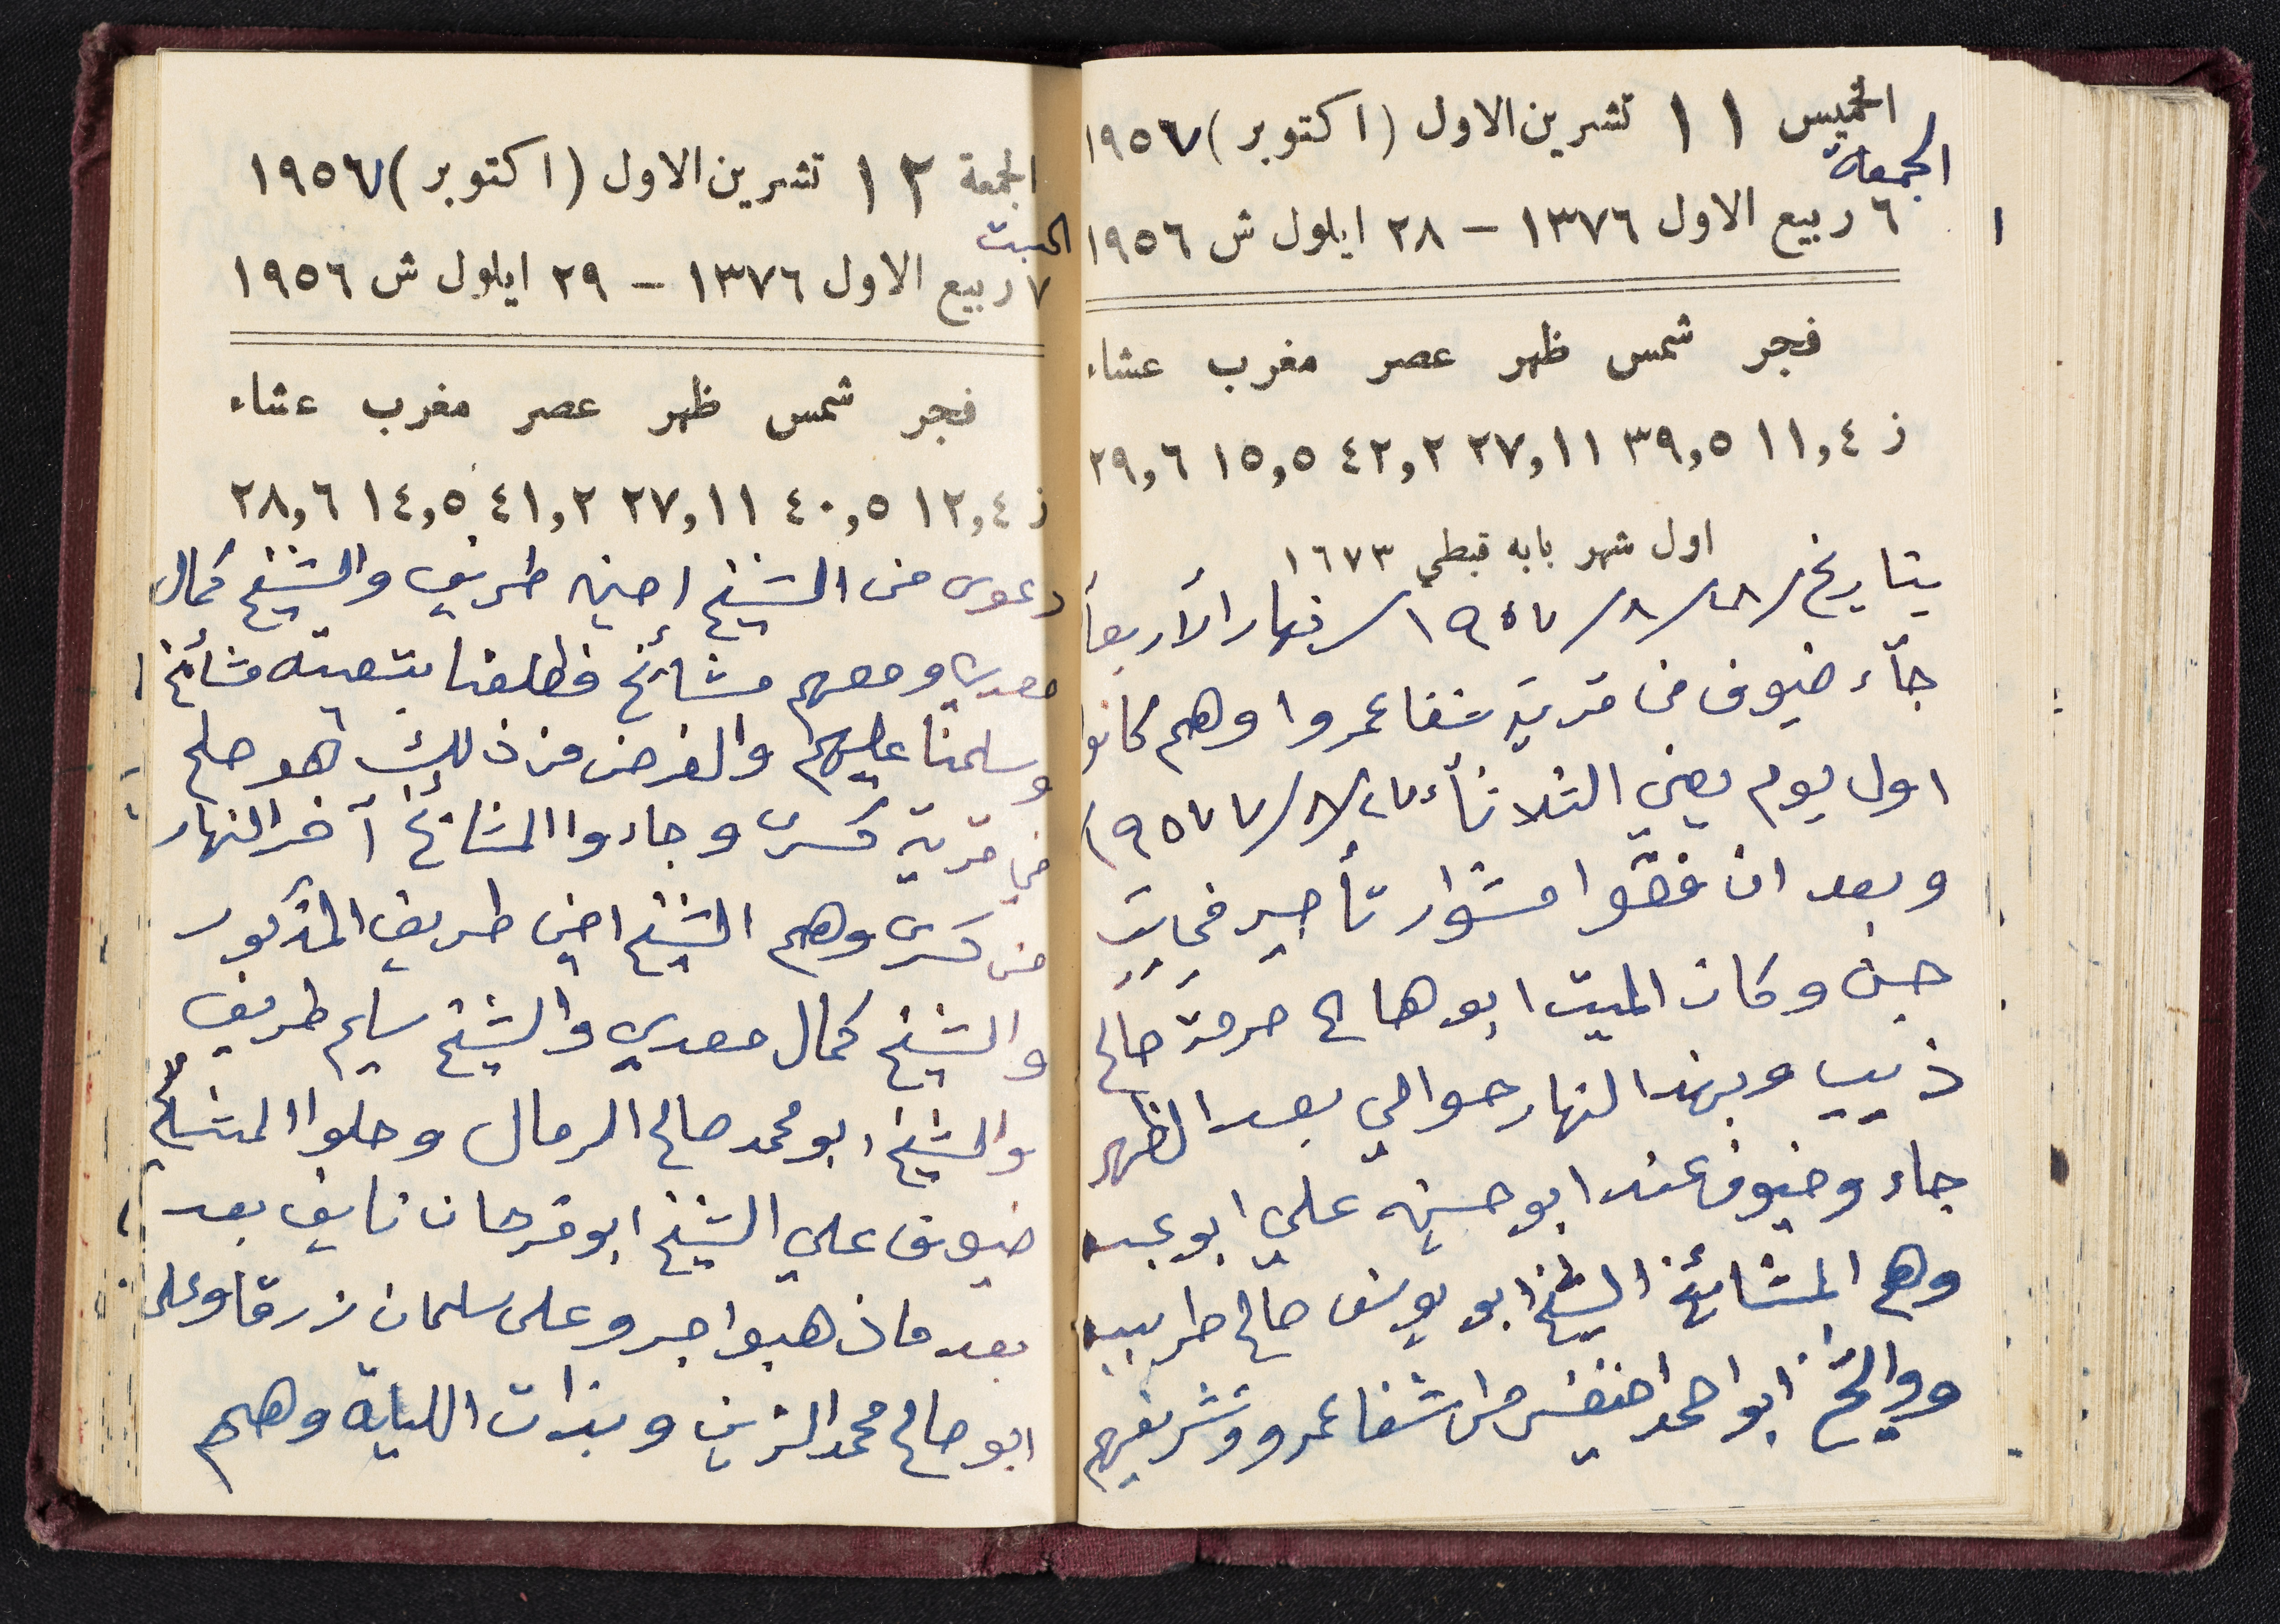 الخميس ١١ تشرين الاول (اكتوبر) ١٩٥٧
الجمعة
٦ ربيع الاول ١٣٧٦ – ٢٨ ايلول ش ١٩٥٦
فجر شمس ظهر عصر مغرب عشاء
ز ١١,٤ ٣٩,٥ ٢٧,١١ ٤٢,٢ ١٥,٥ ٢٩,٦
اول شهر بابه قبطي ١٦٧٣
بتاريخ ٢٨/٨/١٩٥٧ نهار الأربعأ
جآء ضيوف من قرية شفاعمروا وهم كانوا
اول يوم يعني الثلاثآء ٢٧/٨/١٩٥٧
وبعد ان قضّوا مشوار تأجير في بيت
جن وكان الميت ابو هاني حرمة صالح
ذيب وبهذا النهار حوالي بعد الظهر
جاء وضيوف عند ابو حسين علي ابو عبيد
وهم المشائخ الشيخ ابو يوسف صالح طربيه
ووالشيخ ابو احمد خنيفس من شفاعمرو وتشريفهم
الجمعة ١٢ تشرين الاول (اكتوبر) ١٩٥٧
السبت
٧ ربيع الاول ١٣٧٦ – ٢٩ ايلول ش ١٩٥٦
فجر شمس ظهر عصر مغرب عشاء
ز ١٢,٤ ٤٠,٥ ٢٧,١١ ٤١,٢ ١٤,٥ ٢٨,٦
دعوى من الشيخ امين طريف والشيخ كمال
معدي ومعهم مشائخ فطلعنا مشائخ
وسلمنا عليهم والغرض من ذلك هو صلح
في قرية كسرى وجاءوا المشائخ آخر النهار
من كسرى وهم الشيخ امين طريف المذكور
والشيخ كمال معدي والشيخ سليم طريف
والشيخ ابو محمد صالح الرمال وحلوا المشايخ
ضيوف علي الشيخ ابو فرحان نايف بعد
بعد ما ذهبوا جبرو على سلمان زرقا وعلى
ابو صالح محمد الزين وبذات الليلة وهم